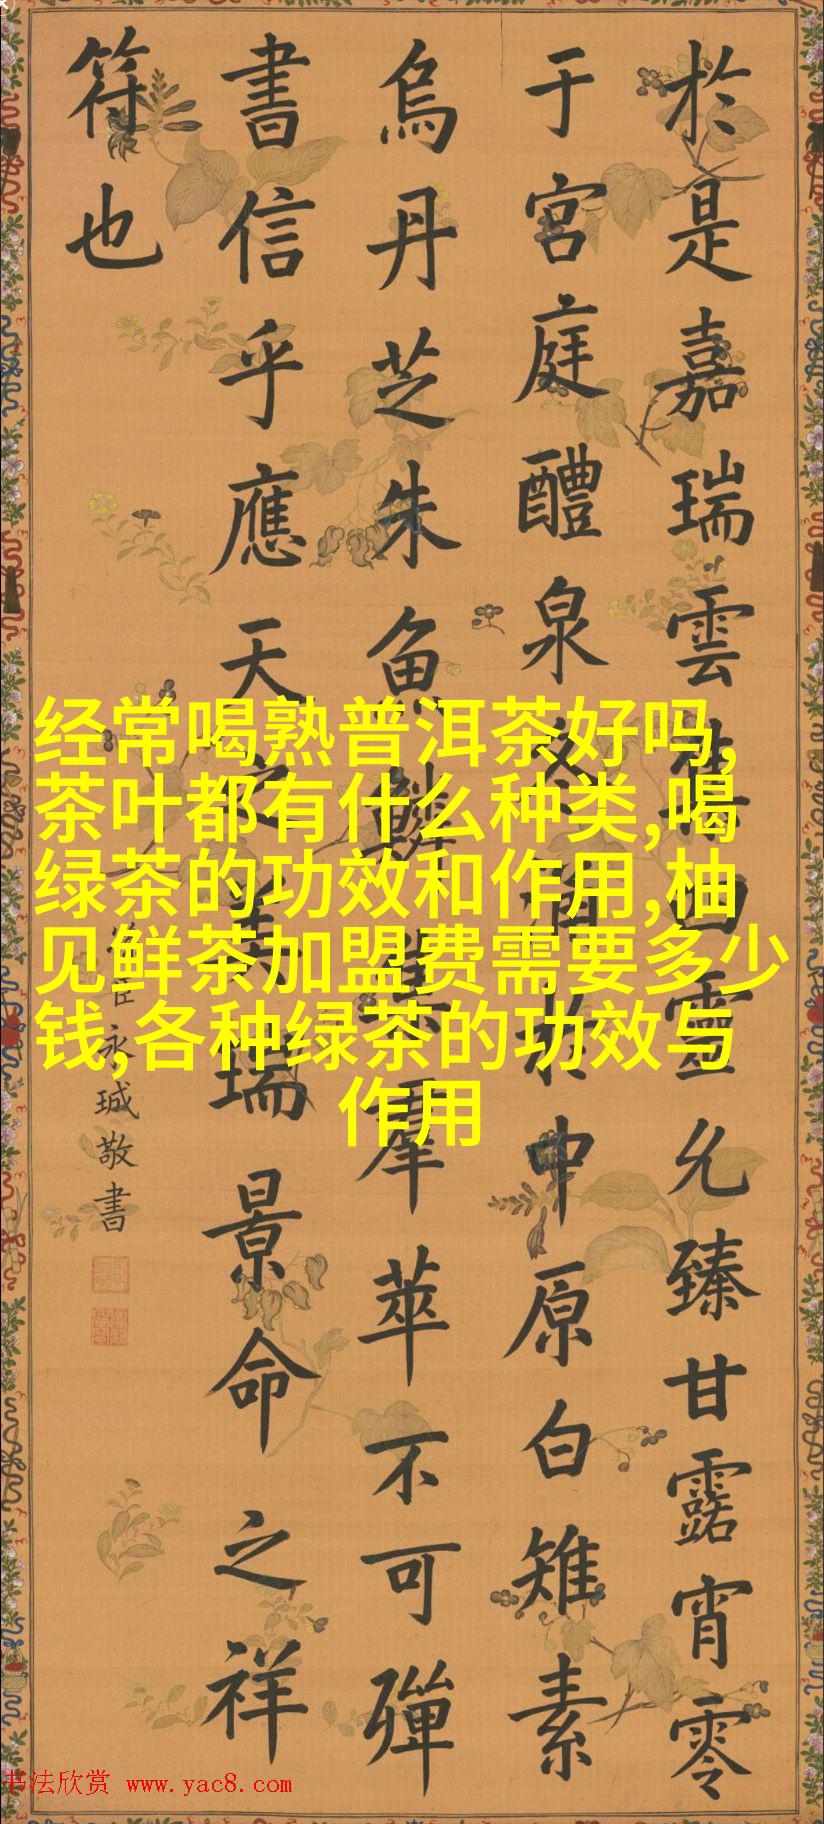 於是嘉瑞雲四靈允臻甘露宵零
于宮庭醴泉冬於中原白雉素
烏丹芝朱魚鱗集羣萃不可殫
書信乎應天之美瑞景命之祥
符也
臣永珹敬書
经常喝熟普洱茶好吗,
茶叶都有什么种类,喝
绿茶的功效和作用,柚
见鲜茶加盟费需要多少
钱,各种绿茶的功效与
作用
书法欣赏 www.yac8.com